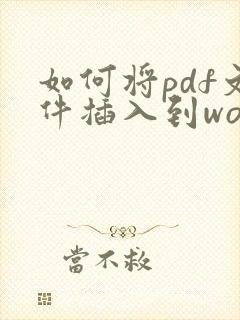 如何将pdf文
件插入到wo
當不救